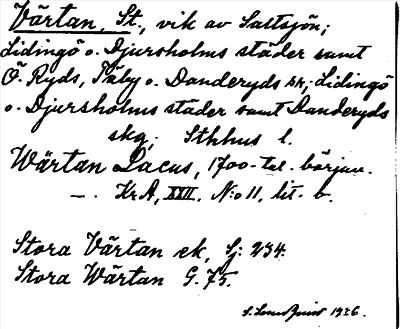 Värtan, St., vik av Saltsjön;
Lidingö o. Djursholms städer samt
Ö. Ryds, Täby o. Danderyds sr; Lidingö
o. Djursholms städer samt Danderyds
skg; Sthlms l.
Wärtan Lacus, 1700-tal. början.
—. Kr A, XXII, N:o 11, lit. b.
Stora Värtan ek, Sj: 234.
Stora Wärtan G. 75.
1926.